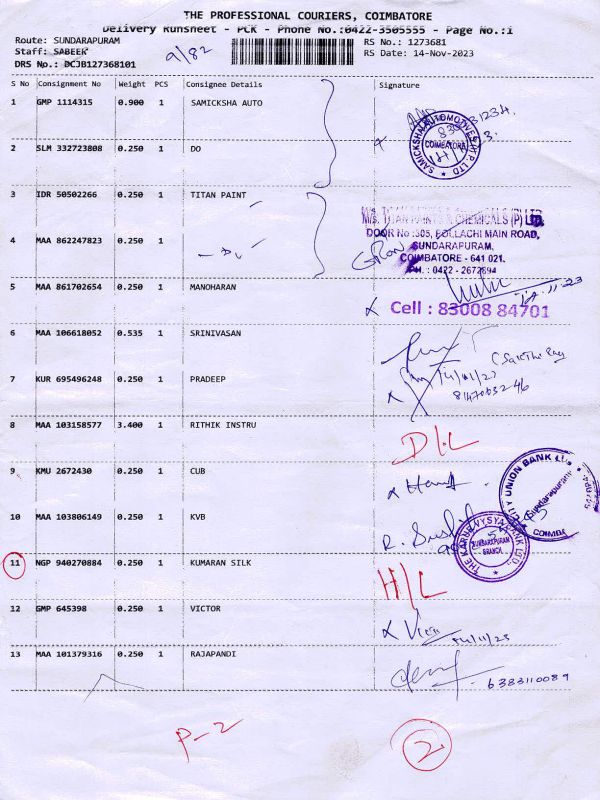 THE PROFESSIONAL COURIERS, COIMBATORE
Delivery Runsheet - PCK - Phone No.:0422-3505555 - Page No.:1
Route: SUNDARAPURAM
RS No.: 1273681
Staff: SABEEK
9/82
RS Date: 14-Nov-2023
DRS No.: DCJB127368101
S No Consignment No Weight PCS Consignee Details Signature
1 GMP 1114315 0.900 1 SAMICKSHA AUTO
SAMICKSHA AUTOMOTIVES (P) LTD
COIMBATORE
2 SLM 332723808 0.250 1 DO
3 IDR 50502266 0.250 1 TITAN PAINT
M/S. TITAN PAINTS & CHEMICALS (P) LTD.
DOOR No :305, POLLACHI MAIN ROAD,
4 MAA 862247823 0.250 1
SUNDARAPURAM,
COIMBATORE - 641 021.
PH. : 0422 - 2672894
5 MAA 861702654 0.250 1 MANOHARAN
14.11.23
Cell : 83008 84701
6 MAA 106618052 0.535 1 SRINIVASAN
7 KUR 695496248 0.250 1 PRADEEP
14/11/23
8 MAA 103158577 3.400 1 RITHIK INSTRU
D.L
9 KMU 2672430 0.250 1 CUB
CITY UNION BANK LTD
Sundarapuram
COIMBA
10 MAA 103806149 0.250 1 KVB
THE KARUR VYSYA BANK LTD.
SUNDARAPURAM
BRANCH
11 NGP 940270884 0.250 1 KUMARAN SILK
H/L
12 GMP 645398 0.250 1 VICTOR
14/11/23
13 MAA 101379316 0.250 1 RAJAPANDI
6383110089
P-2
2